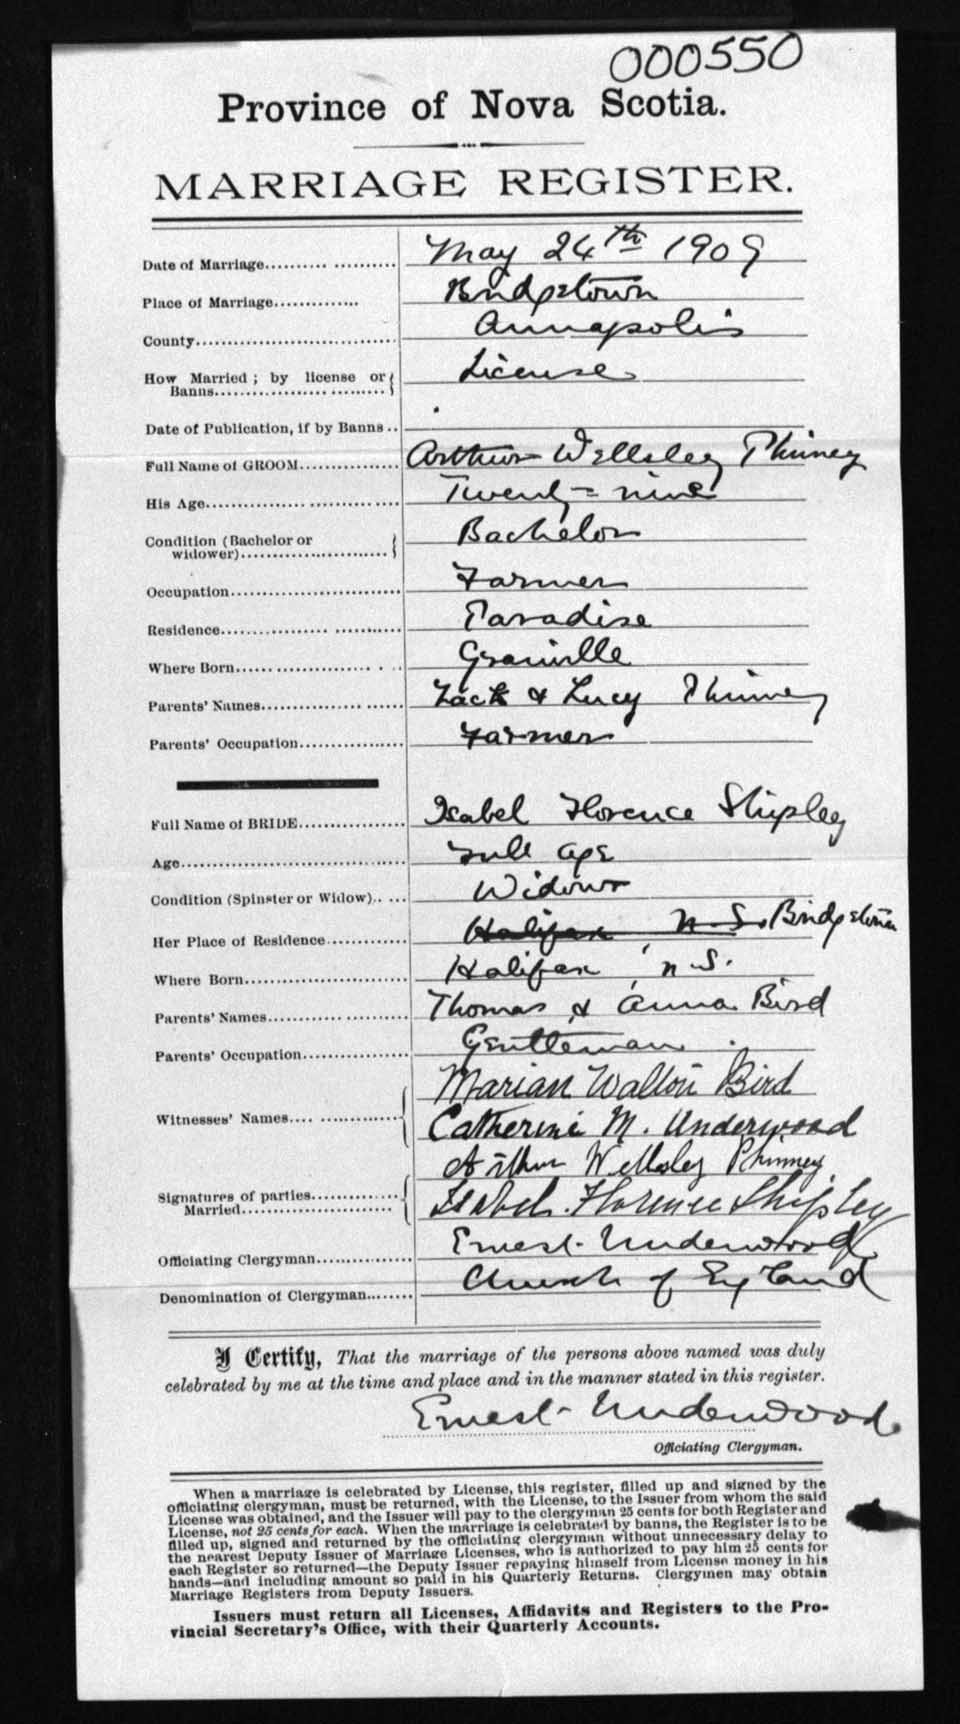 000550
Province of Nova Scotia.
MARRIAGE REGISTER.
Date of Marriage.......... ........... May 24th 1909
Place of Marriage.............. Bridgetown
County................................ Annapolis
How Married ; by license or License
Banns.................. .............
Date of Publication, if by Banns ..
Full Name of GROOM................ Arthur Wellsley Phinney
His Age................ .............. Twenty-nine
Condition (Bachelor or Bachelor
widower)..........................
Occupation........................... Farmer
Residence................. ........... Paradise
Where Born................... . . .. Granville
Parents' Names................. ....... Zack & Lucy Phinney
Parents' Occupation.................. Farmer
Full Name of BRIDE.................. Isabel Florence Shipley
Age..................................... Full age
Condition (Spinster or Widow).. ... Widow
Her Place of Residence.............. Halifax N. S. Bridgetown
Where Born............................ Halifax N. S.
Parents' Names................ ........ Thomas & Anna Bird
Parents' Occupation................... Gentleman
Witnesses' Names.... ............... Marian Walton Bird
Catherine M. Underwood
Arthur Wellsley Phinney
Signatures of parties............... Isabel Florence Shipley
Married..........................
Officiating Clergyman................ Ernest Underwood
Denomination of Clergyman........ Church of England
I Certify, That the marriage of the persons above named was duly
celebrated by me at the time and place and in the manner stated in this register.
Ernest Underwood
Officiating Clergyman.
When a marriage is celebrated by License, this register, filled up and signed by the
officiating clergyman, must be returned, with the License, to the Issuer from whom the said
License was obtained, and the Issuer will pay to the clergyman 25 cents for both Register and
License, not 25 cents for each. When the marriage is celebrated by banns, the Register is to be
filled up, signed and returned by the officiating clergyman without unnecessary delay to
the nearest Deputy Issuer of Marriage Licenses, who is authorized to pay him 25 cents for
each Register so returned—the Deputy Issuer repaying himself from License money in his
hands—and including amount so paid in his Quarterly Returns. Clergymen may obtain
Marriage Registers from Deputy Issuers.
Issuers must return all Licenses, Affidavits and Registers to the Pro-
vincial Secretary's Office, with their Quarterly Accounts.